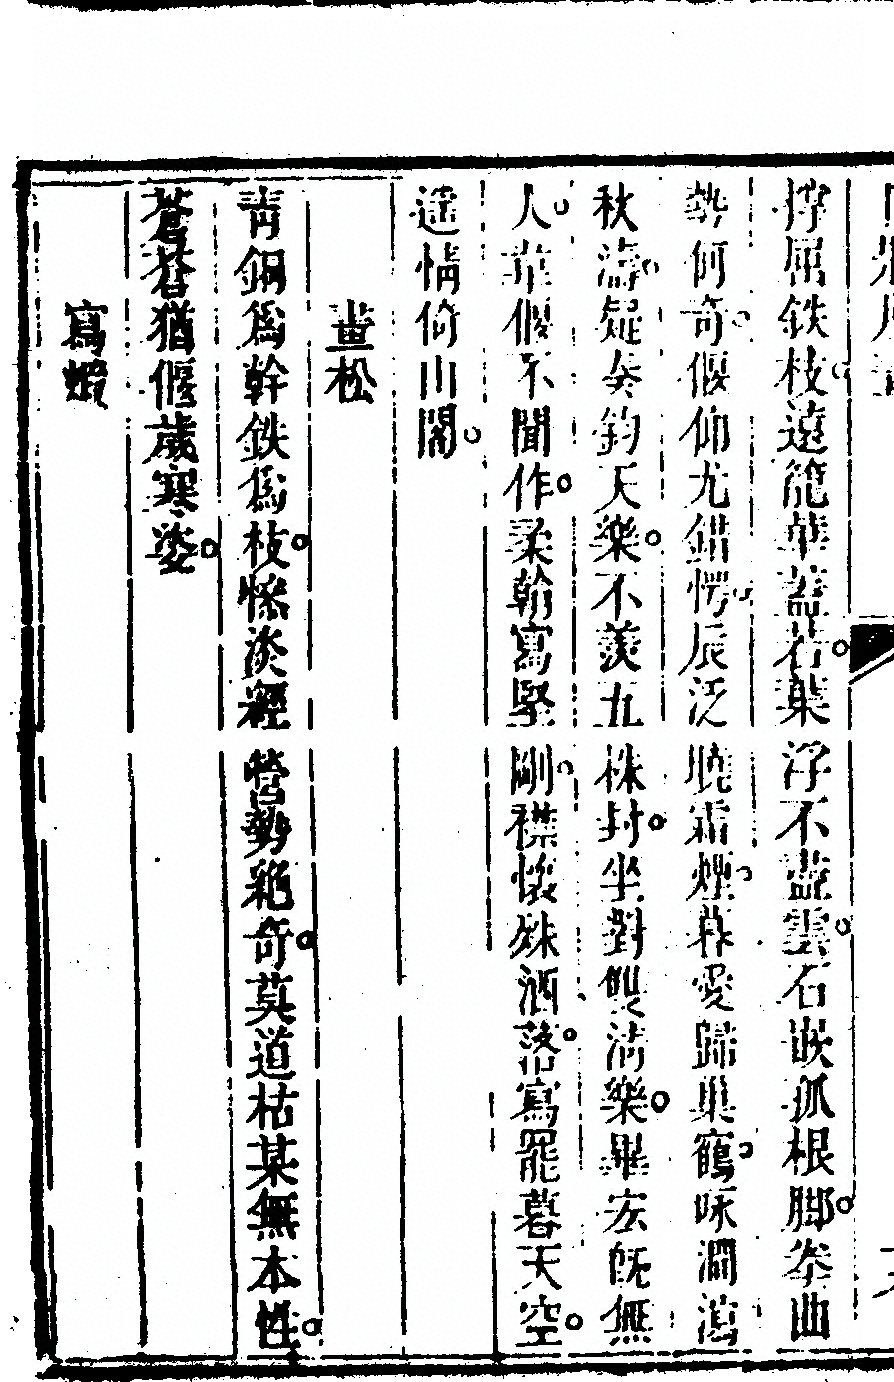 撑屈鉄枝遠籠華葢若葉浮不盡雲石嵌孤根脚拳曲
勢何奇偃仰尤錯愕辰泛曉霜煙暮愛歸巢鶴咏澗瀉
秋濤疑奏鈞天樂不羨五株封坐對雙清樂畢宏旣無
人韋偃不聞作柔翰寓堅剛襟懐殊洒落寫罷暮天空
遥情倚山閣
畫松
靑銅爲幹鉄爲枝慘淡經營勢絶奇莫道枯某無本性
蒼苔猶偃歲寒姿
寫蝦